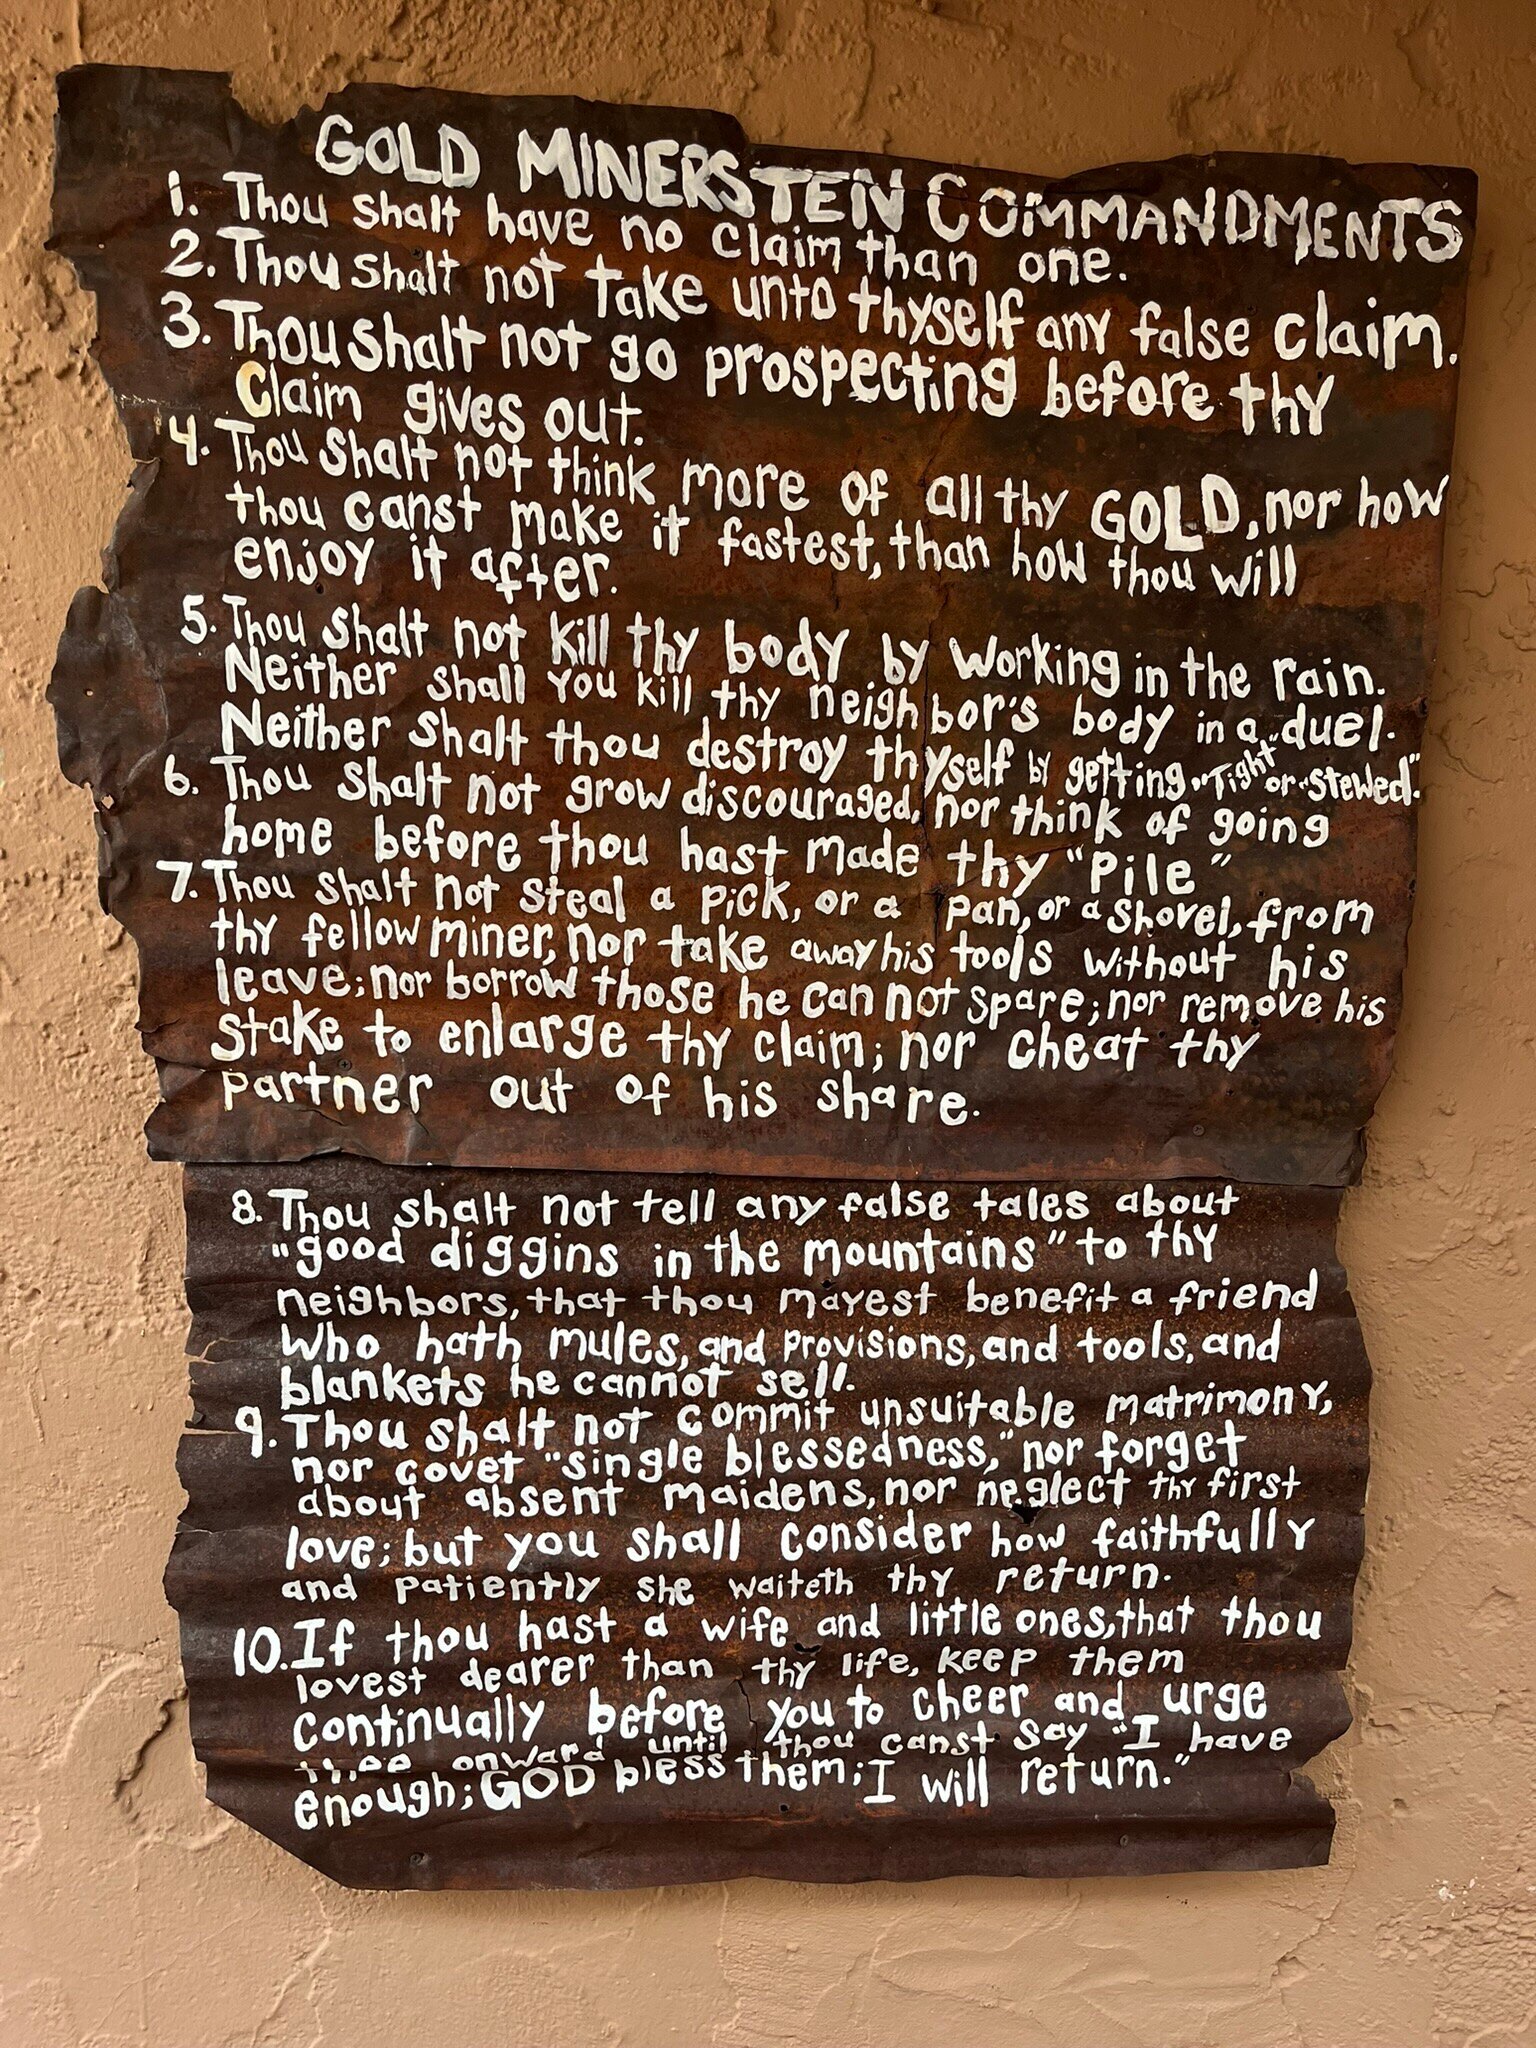 GOLD MINERS TEN COMMANDMENTS
1. Thou shalt have no claim than one.
2. Thou shalt not take unto thyself any false claim.
3. Thou shalt not go prospecting before thy
claim gives out.
4. Thou shalt not think more of all thy GOLD, nor how
thou canst make it fastest, than how thou will
enjoy it after.
5. Thou shalt not kill thy body by working in the rain.
Neither shall you kill thy neighbor's body in a duel.
Neither shalt thou destroy thyself by getting "Tight" or "Stewed."
6. Thou shalt not grow discouraged, nor think of going
home before thou hast made thy "Pile"
7. Thou shalt not steal a pick, or a pan, or a shovel, from
thy fellow miner, nor take away his tools without his
leave; nor borrow those he can not spare; nor remove his
stake to enlarge thy claim; nor cheat thy
partner out of his share.
8. Thou shalt not tell any false tales about
"good diggins in the mountains" to thy
neighbors, that thou mayest benefit a friend
who hath mules, and provisions, and tools, and
blankets he cannot sell.
9. Thou shalt not commit unsuitable matrimony,
nor covet "single blessedness," nor forget
about absent maidens, nor neglect thy first
love; but you shall consider how faithfully
and patiently she waiteth thy return.
10. If thou hast a wife and little ones, that thou
lovest dearer than thy life, keep them
continually before you to cheer and urge
thee onward until thou canst say "I have
enough; GOD bless them; I will return."